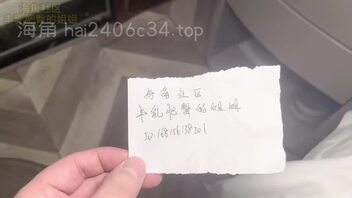 海角社区
丰乳肥臀的姐姐
海角 hai2406c34.top
海角社区
丰乳肥臀的姐姐